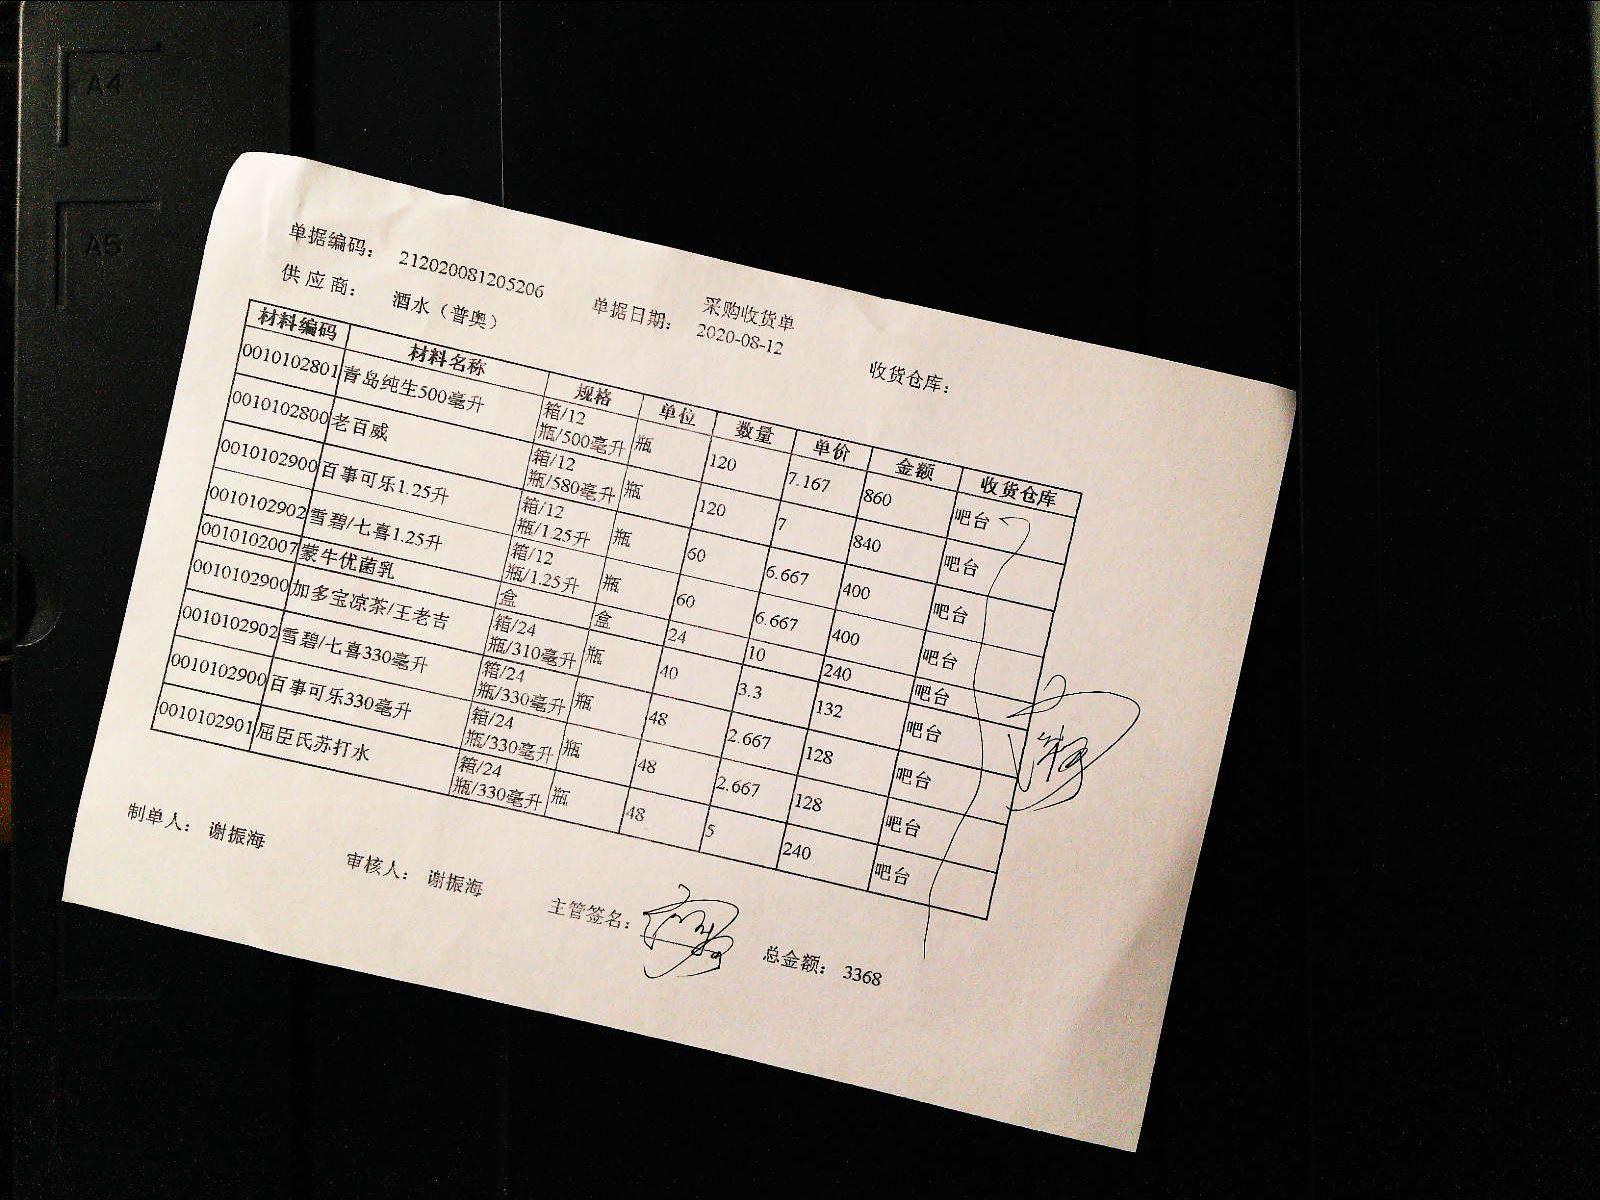 A4
A5
采购收货单
单据编码： 212020081205206 单据日期： 2020-08-12 收货仓库：
供 应 商： 酒水（普奥）
材料编码 材料名称 规格 单位 数量 单价 金额 收货仓库
0010102801 青岛纯生500毫升 箱/12瓶/500毫升 瓶 120 7.167 860 吧台
0010102800 老百威 箱/12瓶/580毫升 瓶 120 7 840 吧台
0010102900 百事可乐1.25升 箱/12瓶/1.25升 瓶 60 6.667 400 吧台
0010102902 雪碧/七喜1.25升 箱/12瓶/1.25升 瓶 60 6.667 400 吧台
0010102007 蒙牛优菌乳 盒 盒 24 10 240 吧台
0010102900 加多宝凉茶/王老吉 箱/24瓶/310毫升 瓶 40 3.3 132 吧台
0010102902 雪碧/七喜330毫升 箱/24瓶/330毫升 瓶 48 2.667 128 吧台
0010102900 百事可乐330毫升 箱/24瓶/330毫升 瓶 48 2.667 128 吧台
0010102901 屈臣氏苏打水 箱/24瓶/330毫升 瓶 48 5 240 吧台
制单人： 谢振海 审核人： 谢振海 主管签名： 总金额： 3368